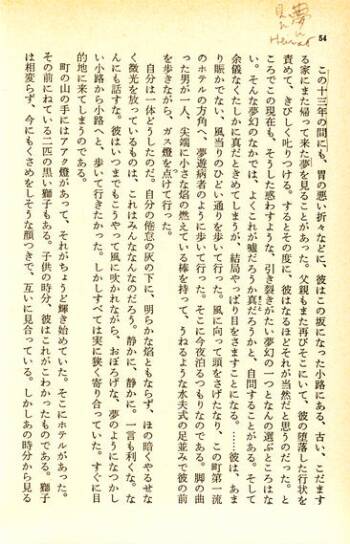 54
夢に
見た
Heimat
この十三年の間にも、胃の悪い折々などに、彼はこの坂になった小路にある、古い、こだます
る家にまた帰って来た夢を見ることがあった。父親もまた再びそこにいて、彼の堕落した行状を
責めて、きびしく叱りつける。するとその度に、彼はなるほどそれが当然だと思うのだった。と
ころでこの現在も、そうした惑わすような、引き裂きがたい夢幻の一つとなんの選ぶところはな
い。そんな夢幻のなかでは、よくこれが嘘だろうか真だろうかと、自問することがある。そして
余儀なくたしかに真だときめてしまうが、結局やっぱり目をさますことになる。……彼は、あま
り賑かでない、風当りのひどい通りを歩いて行った。風に向って頭をさげたなり、この町第一流
のホテルの方角へ、夢遊病者のように歩いて行った。そこに今夜泊るつもりなのである。脚の曲
った男が一人、尖端に小さな焔の燃えている棒を持って、うねるような水夫式の足並みで彼の前
を歩きながら、ガス燈を点けて行った。
自分は一体どうしたのだ。自分の倦怠の灰の下に、明らかな焔ともならず、ほの暗くやるせな
く微光を放っているものは、これはみんななんなのだろう。静かに、静かに。一言も利くな。な
んにも話すな。彼はいつまでもこうやって風に吹かれながら、おぼろげな、夢のようになつかし
い小路から小路へと、歩いて行きたかった。しかしすべては実に狭く寄り合っていた。すぐに目
的地に来てしまうのである。
町の山の手にはアアク燈があって、それがちょうど輝き始めていた。そこにホテルがあった。
その前にねている二匹の黒い獅子もある。子供の時分、彼はこれがこわかったものである。獅子
は相変らず、今にもくさめをしそうな顔つきで、互いに見合っている。しかしあの時分から見る